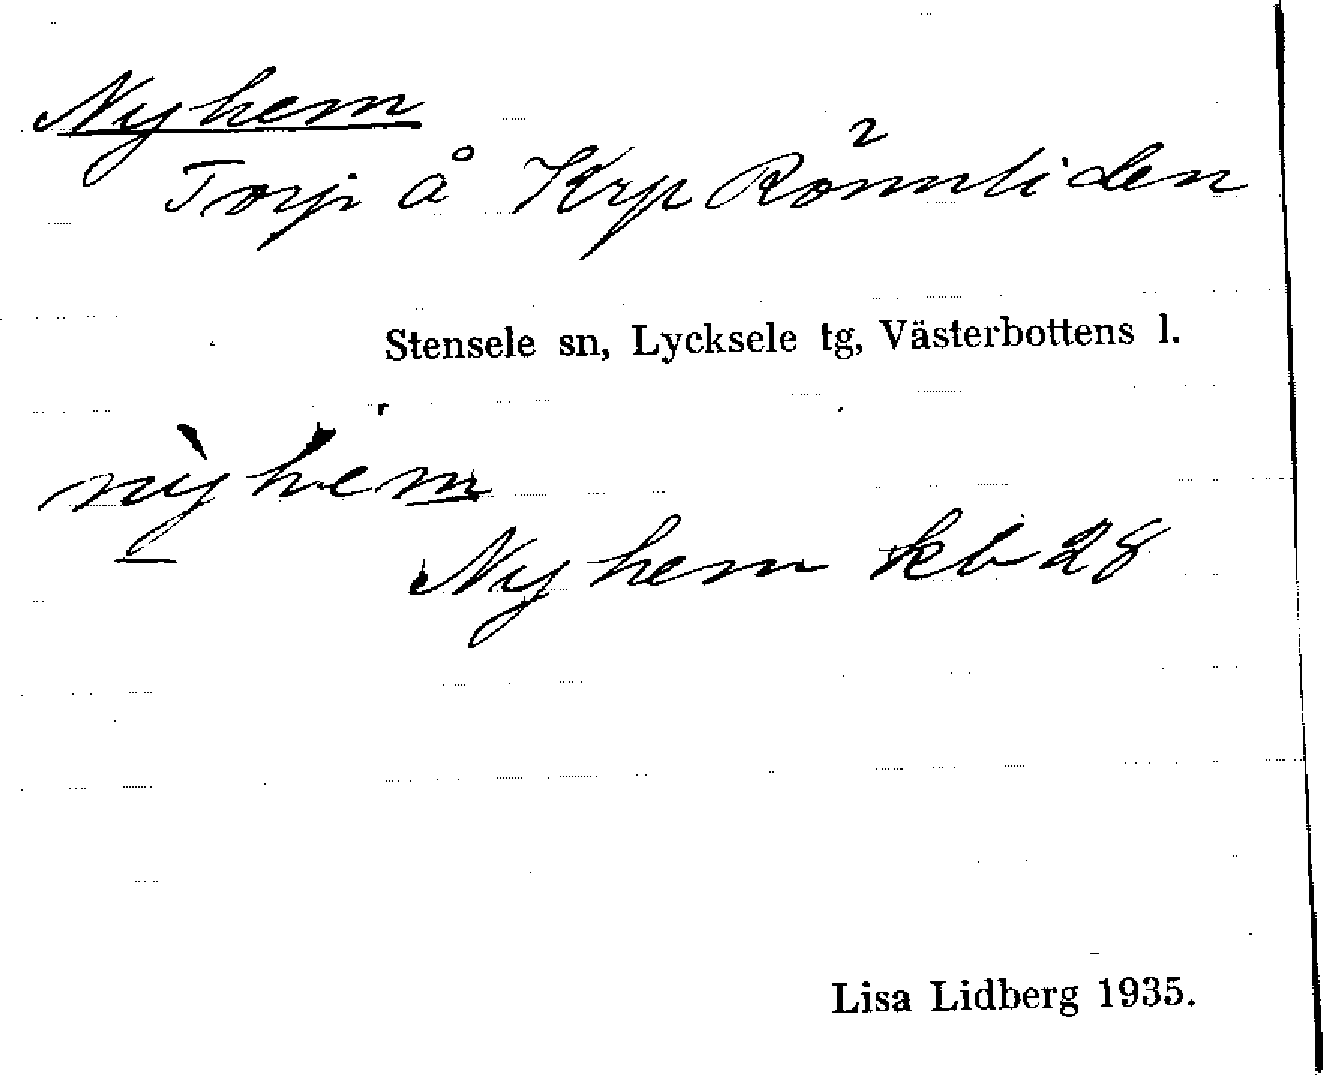 Nyhem
Torp å Krp Rönnliden
Stensele sn, Lycksele tg, Västerbottens l.
nỳhem
Nyhem kb 28
Lisa Lidberg 1935.